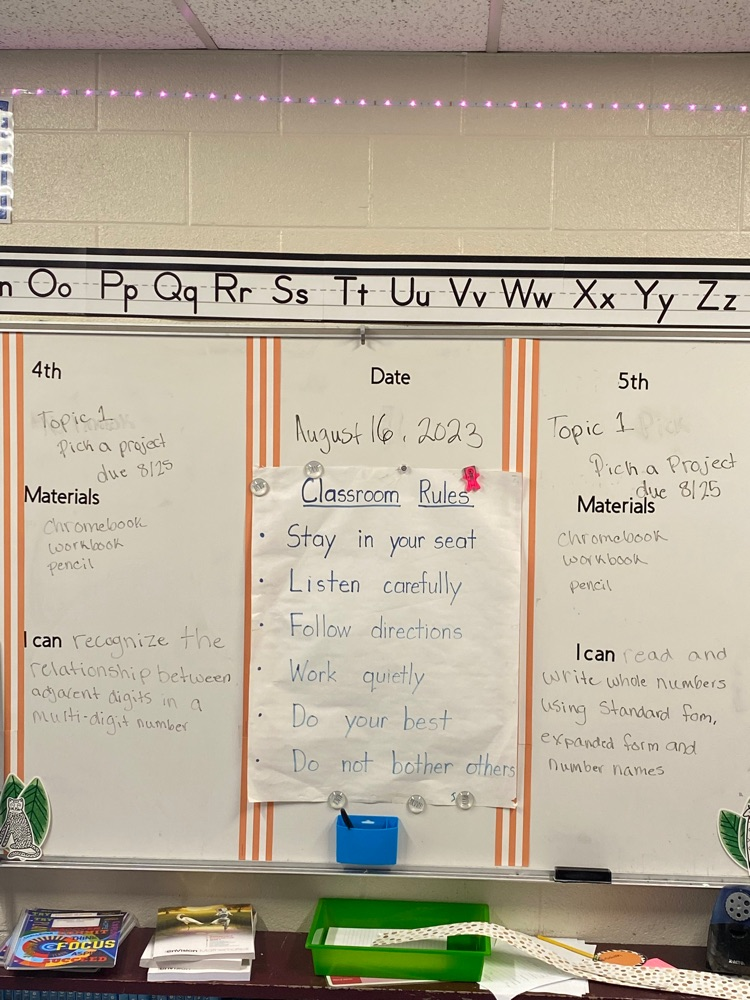 n Oo Pp Qq Rr Ss Tt Uu Vv Ww Xx Yy Zz
4th
Topic 1
Pick a project
due 8/25
Materials
chromebook
workbook
pencil
I can recognize the
relationship between
adjacent digits in a
multi-digit number
Date
August 16, 2023
Classroom Rules
• Stay in your seat
• Listen carefully
• Follow directions
• Work quietly
• Do your best
• Do not bother others
5th
Topic 1 Pick
Pick a Project
due 8/25
Materials
chromebook
workbook
pencil
I can read and
write whole numbers
using standard fom,
expanded form and
number names
FOCUS